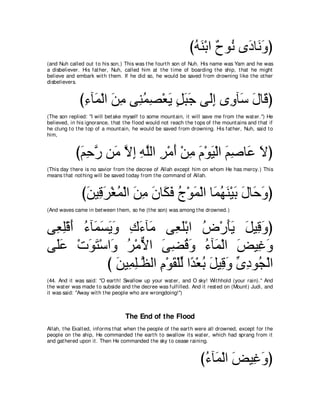 (وَنَادَى نُوحٌ ابْنَهُ)
(and Nuh called out to his son,) This was the fourth son of Nuh. His name was Yam and he was
a disbeliever. His father, Nuh, called him at the time of boarding the ship, that he might
believe and embark with them. If he did so, he would be saved from drowning like the other
disbelievers.
(قَالَ سَآوِى إِلَى جَبَلٍ يَعْصِمُنِى مِنَ الْمَآءِ)
(The son replied: "I will betake myself to some mountain, it will save me from the water.") He
believed, in his ignorance, that the flood would not reach the tops of the mountains and that if
he clung to the top of a mountain, he would be saved from drowning. His father, Nuh, said to
him,
(لاَ عَاصِمَ الْيَوْمَ مِنْ أَمْرِ اللَّهِ إِلاَّ مَن رَّحِمَ)
(This day there is no savior from the decree of Allah except him on whom He has mercy.) This
means that nothing will be saved today from the command of Allah.
(وَحَالَ بَيْنَهُمَا الْمَوْجُ فَكَانَ مِنَ الْمُغْرَقِينَ)
(And waves came in between them, so he (the son) was among the drowned.)
(وَقِيلَ يأَرْضُ ابْلَعِى مَآءَكِ وَيسَمَآءُ أَقْلِعِى
وَغِيضَ الْمَآءُ وَقُضِىَ الاٌّمْرُ وَاسْتَوَتْ عَلَى
الْجُودِىِّ وَقِيلَ بُعْدًا لِّلْقَوْمِ الظَّـلِمِينَ )
(44. And it was said: "O earth! Swallow up your water, and O sky! Withhold (your rain)." And
the water was made to subside and the decree was fulfilled. And it rested on (Mount) Judi, and
it was said: "Away with the people who are wrongdoing!")
The End of the Flood
Allah, the Exalted, informs that when the people of the earth were all drowned, except for the
people on the ship, He commanded the earth to swallow its water, which had sprang from it
and gathered upon it. Then He commanded the sky to cease raining.
(وَغِيضَ الْمَآءُ)